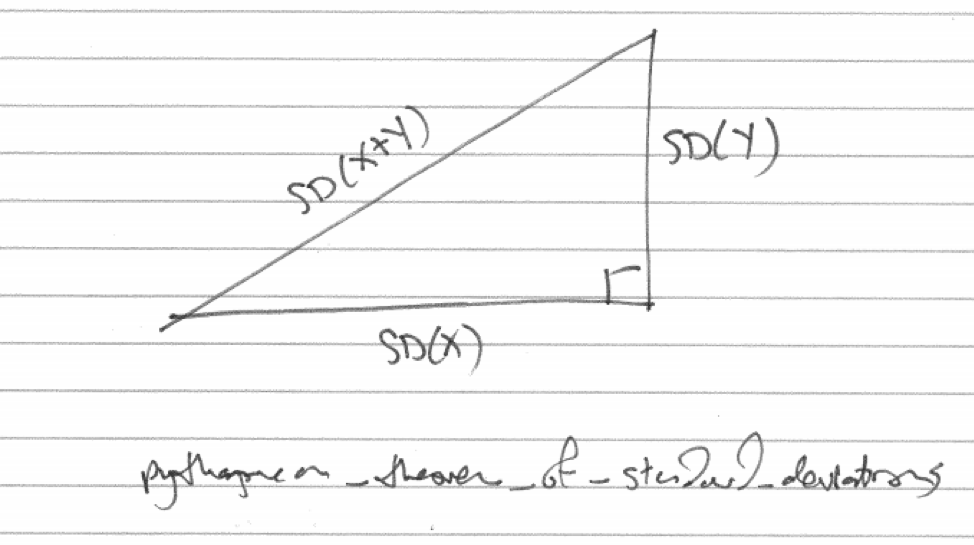 SD(X+Y)
SD(Y)
SD(X)
pythagorean_theorem_of_standard_deviations